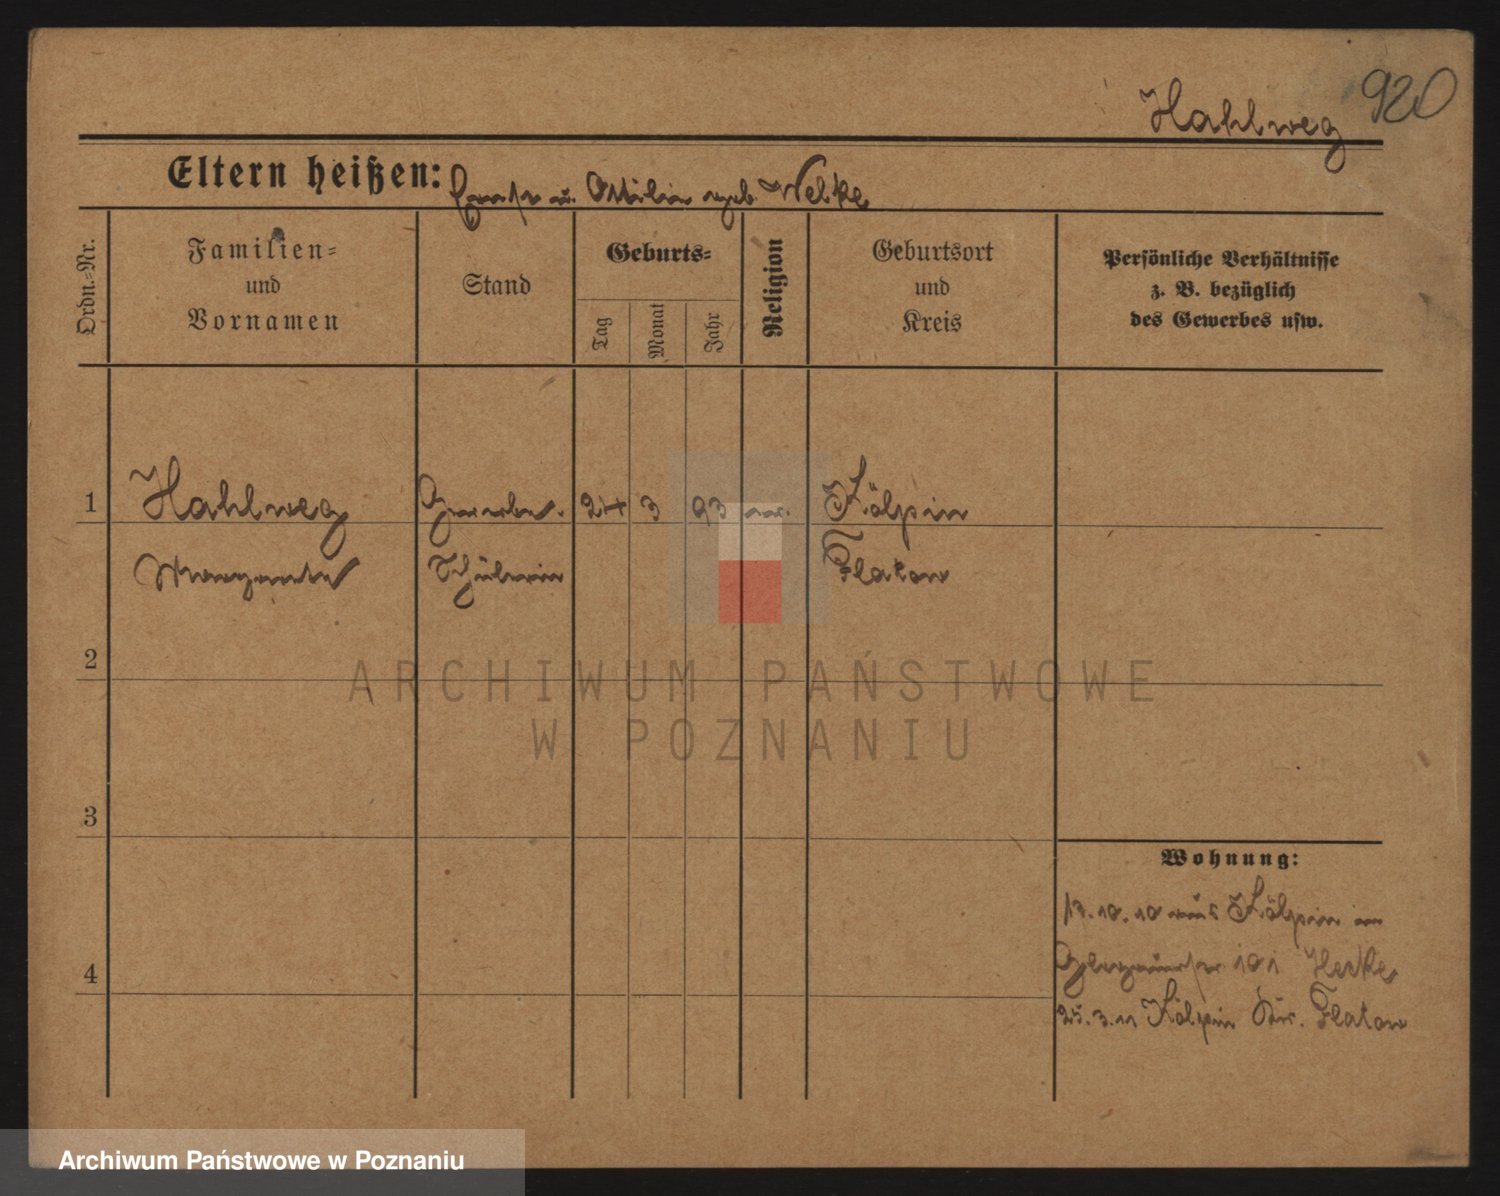 Hahlweg 920
Eltern heißen: Ernst u. Ottilie geb. Welke
Ordn.=Nr.
Familien=
und
Vornamen
Stand
Geburts=
Tag
Monat
Jahr
Religion
Geburtsort
und
Kreis
Persönliche Verhältnisse
z. B. bezüglich
des Gewerbes usw.
1 Hahlweg Gewerbe. 24 3 93 ev. Kölpin
Margarete Schülerin Flatow
2
ARCHIWUM PAŃSTWOWE
W POZNANIU
3
4
Wohnung:
13.10.10 aus Kölpin in
101
25.3.11 Kölpin Kr. Flatow
Archiwum Państwowe w Poznaniu